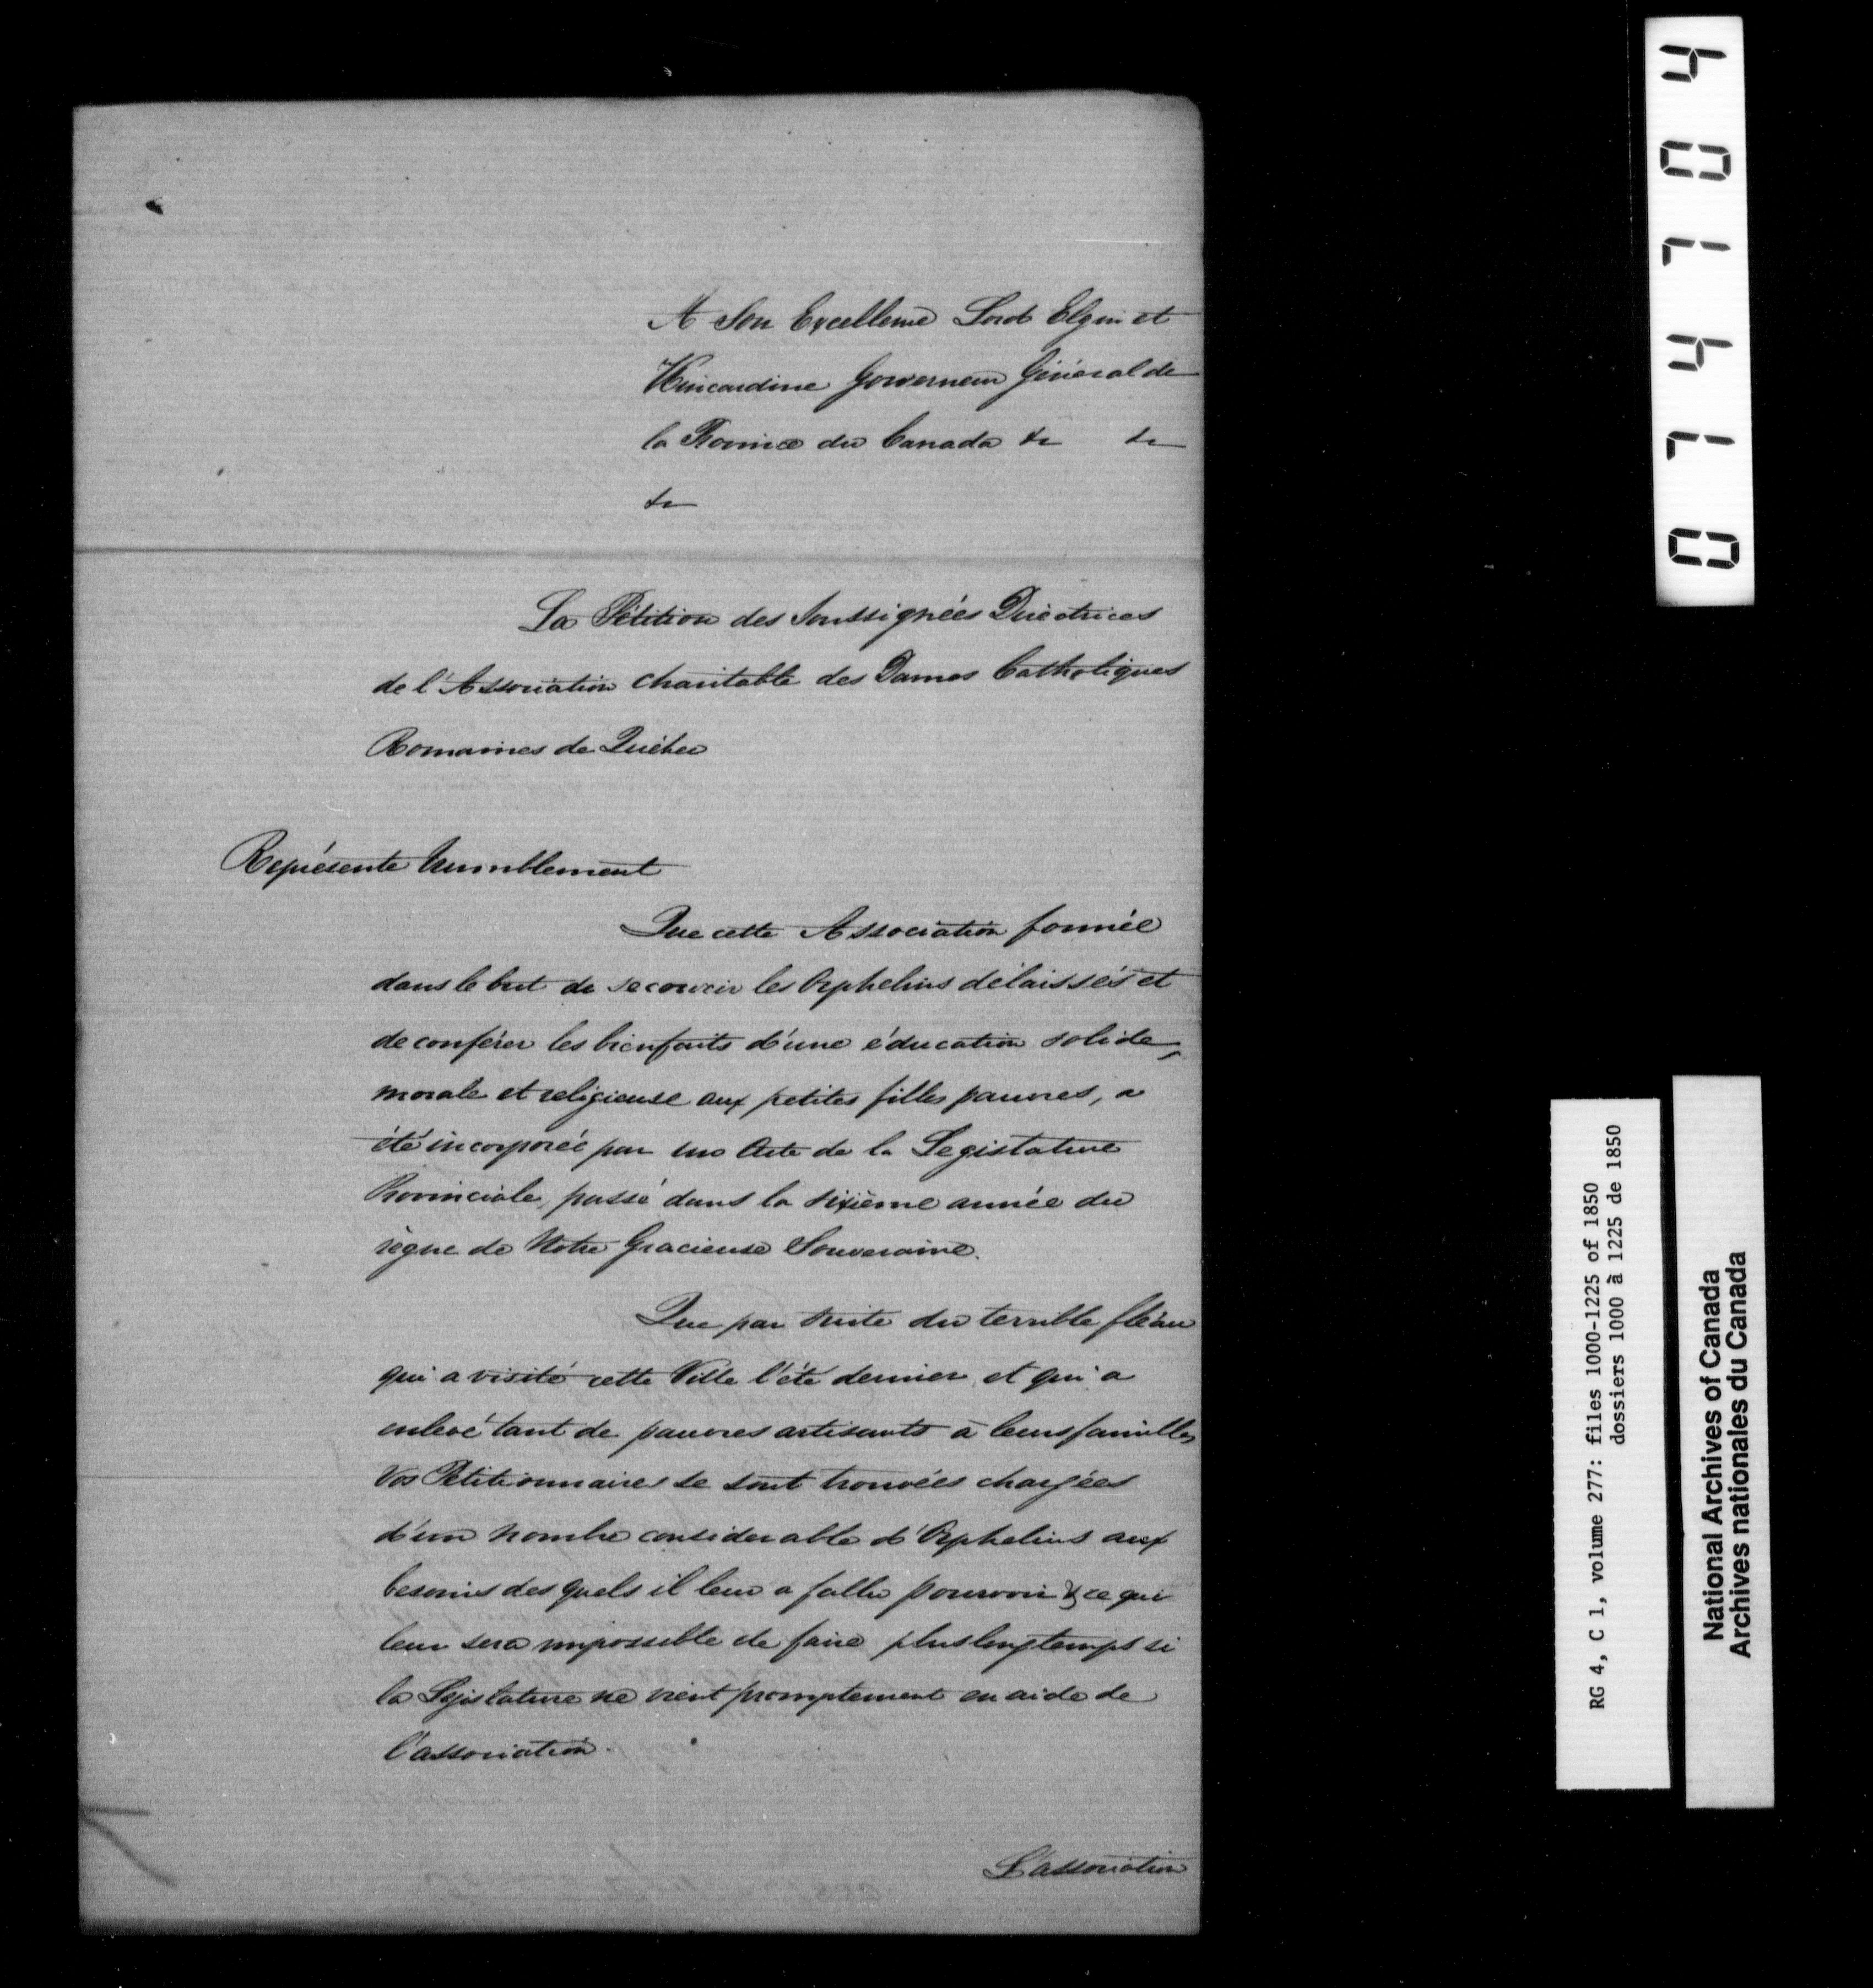 A Son Excellence Lord Elgin et
Kincardine Gouverneur Général de
la Province du Canada &c &c
&c
La Pétition des Soussignées Directrices
de l'Association charitable des Dames Catholiques
Romaines de Québec
Représente humblement
Que cette Association formée
dans le but de secourir les Orphelins délaissés et
de conférer les bienfaits d'une éducation solide,
morale et religieuse aux petites filles pauvres, a
été incorporée par un Acte de la Legislature
Provinciale, passé dans la sixième année du
règne de Notre Gracieuse Souveraine.
Que par suite du terrible fléau
qui a visité cette Ville l'été dernier et qui a
enlevé tant de pauvres artisants à leurs familles,
Vos Pétitionnaires se sont trouvées chargées
d'un nombre considerable d'Orphelins aux
besoins des quels il leur a fallu pourvoir & ce qui
leur sera impossible de faire plus longtemps si
la Legislature ne vient promptement en aide de
l'association.
L'association
074704
RG 4, C 1, volume 277: files 1000-1225 of 1850
dossiers 1000 à 1225 de 1850
National Archives of Canada
Archives nationales du Canada